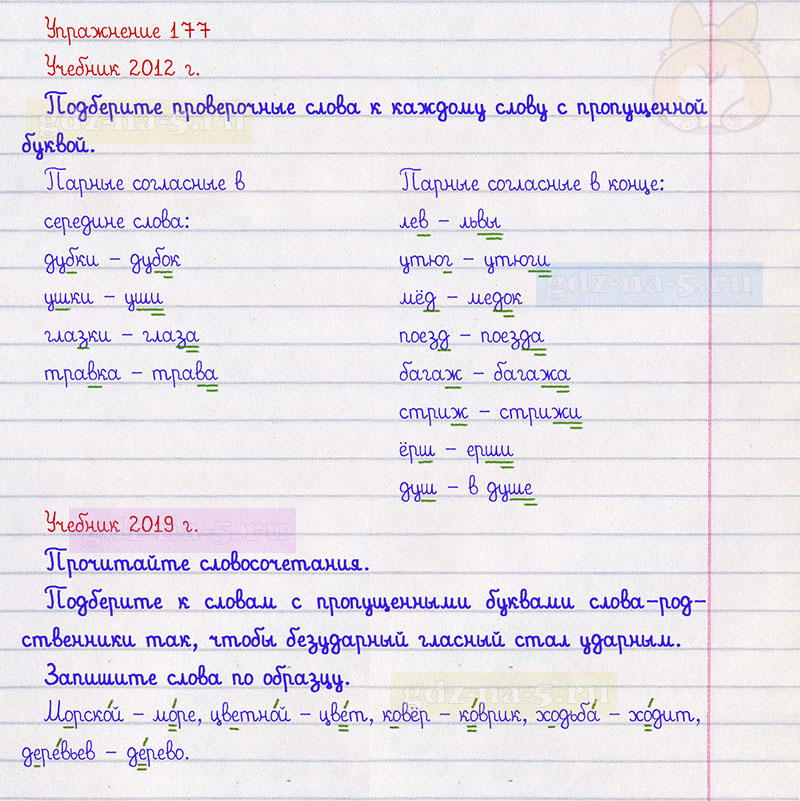 Упражнение 177
Учебник 2012 г.
Подберите проверочные слова к каждому слову с пропущенной
буквой.
Парные согласные в
середине слова:
дубки – дубок
ушки – уши
глазки – глаза
травка – трава
Парные согласные в конце:
лев – львы
утюг – утюги
мёд – медок
поезд – поезда
багаж – багажа
стриж – стрижи
ёрш – ерши
душ – в душе
gdz-na-5.ru
gdz-na-5.ru
Учебник 2019 г.
gdz-na-5.ru
Прочитайте словосочетания.
Подберите к словам с пропущенными буквами слова-род-
ственники так, чтобы безударный гласный стал ударным.
Запишите слова по образцу.
gdz-na-5.ru
Морско́й – мо́ре, цветно́й – цве́т, ковёр – ко́врик, ходьба́ – хо́дит,
дере́вьев – де́рево.